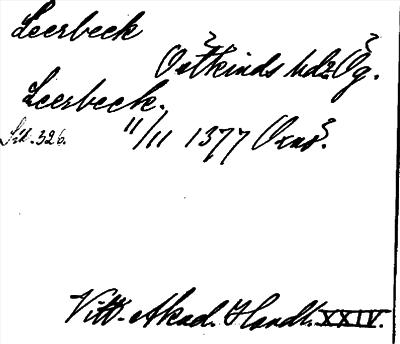 Leerbeck
Östkinds hd. Ög.
Leerbeck.
Sid. 326. 11/11 1377 Or.
Vitt. Akad. Handl. XXIV.